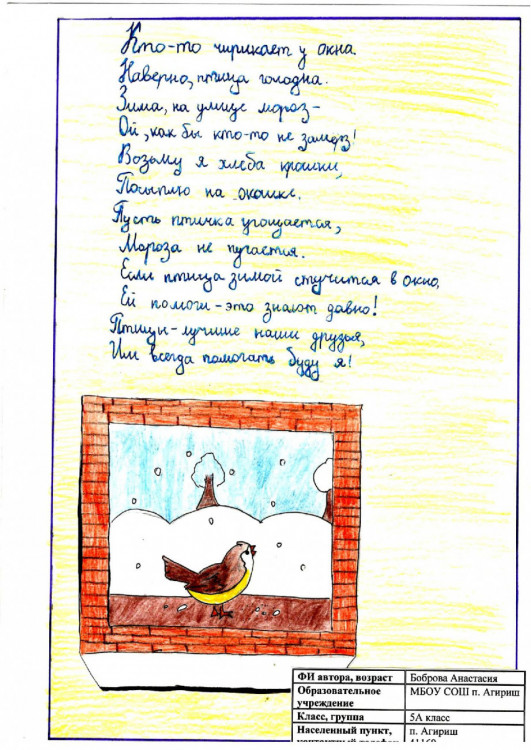 Кто-то чирикает у окна.
Наверно, птица голодна.
Зима, на улице мороз-
Ой, как бы кто-то не замёрз!
Возьму я хлеба крошки,
Посыплю на окошке.
Пусть птичка угощается,
Мороза не пугается.
Если птица зимой стучится в окно,
Ей помоги-это знают давно!
Птицы-лучшие наши друзья,
Им всегда помогать буду я!
ФИ автора, возраст Боброва Анастасия
Образовательное МБОУ СОШ п. Агириш
учреждение
Класс, группа 5А класс
Населенный пункт, п. Агириш